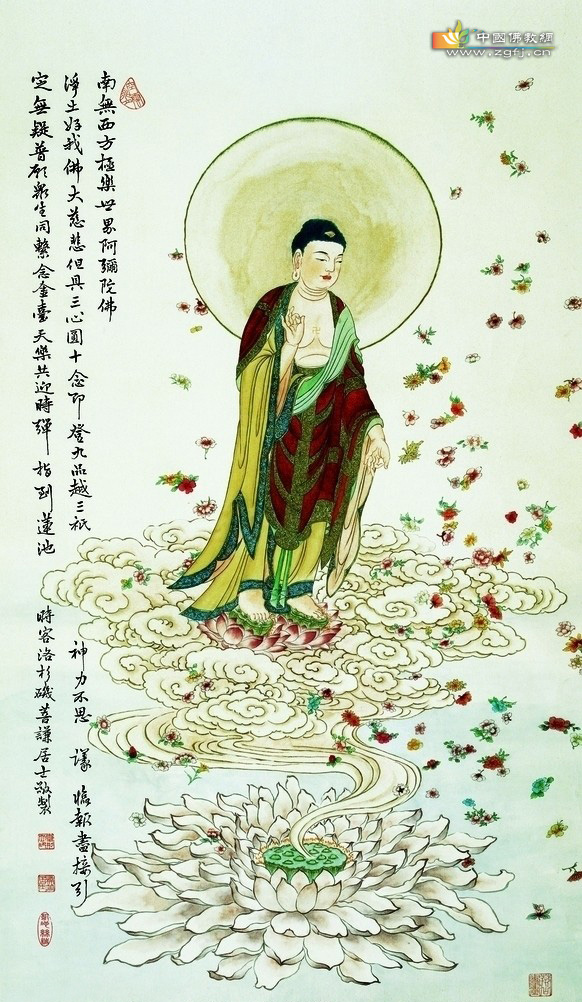 中國佛教網
www.zgfj.cn
南無西方極樂世界阿彌陀佛
淨土好我佛大慈悲但具三心圓十念即登九品越三祇 神力不思議 臨報盡接引
定無疑普願眾生同繫念金臺天樂共迎時彈指到蓮池
時客洛杉磯菩謙居士敬製